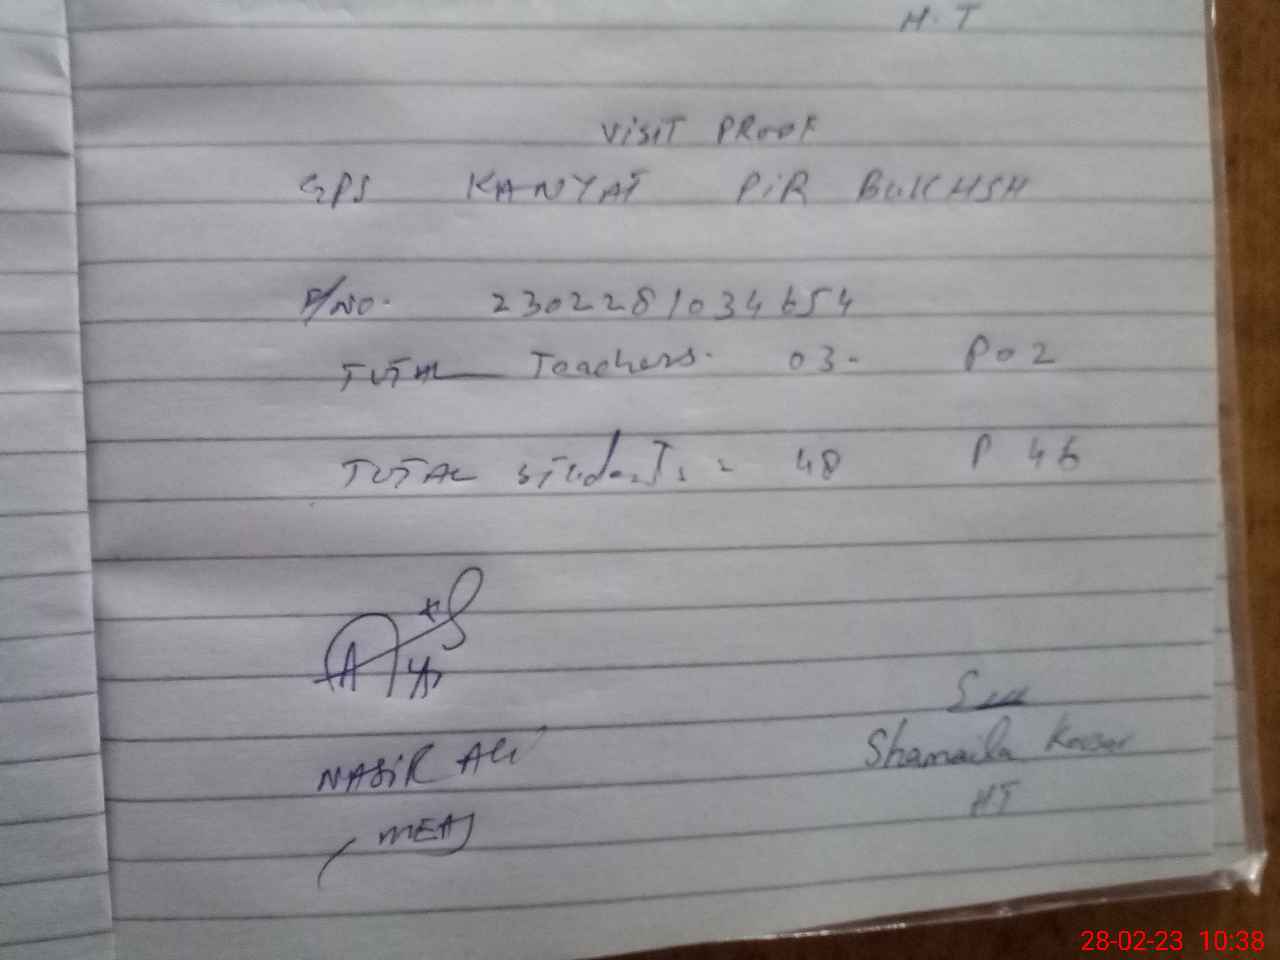 H.T
VISIT PROOF
GPS KANYAT PIR BUKHSH
P/NO. 2302281034654
TOTAL Teachers. 03. P 02
TOTAL students = 48 P 46
NASIR ALI
Shamaila Kousar
HT
(MEA)
28-02-23 10:38